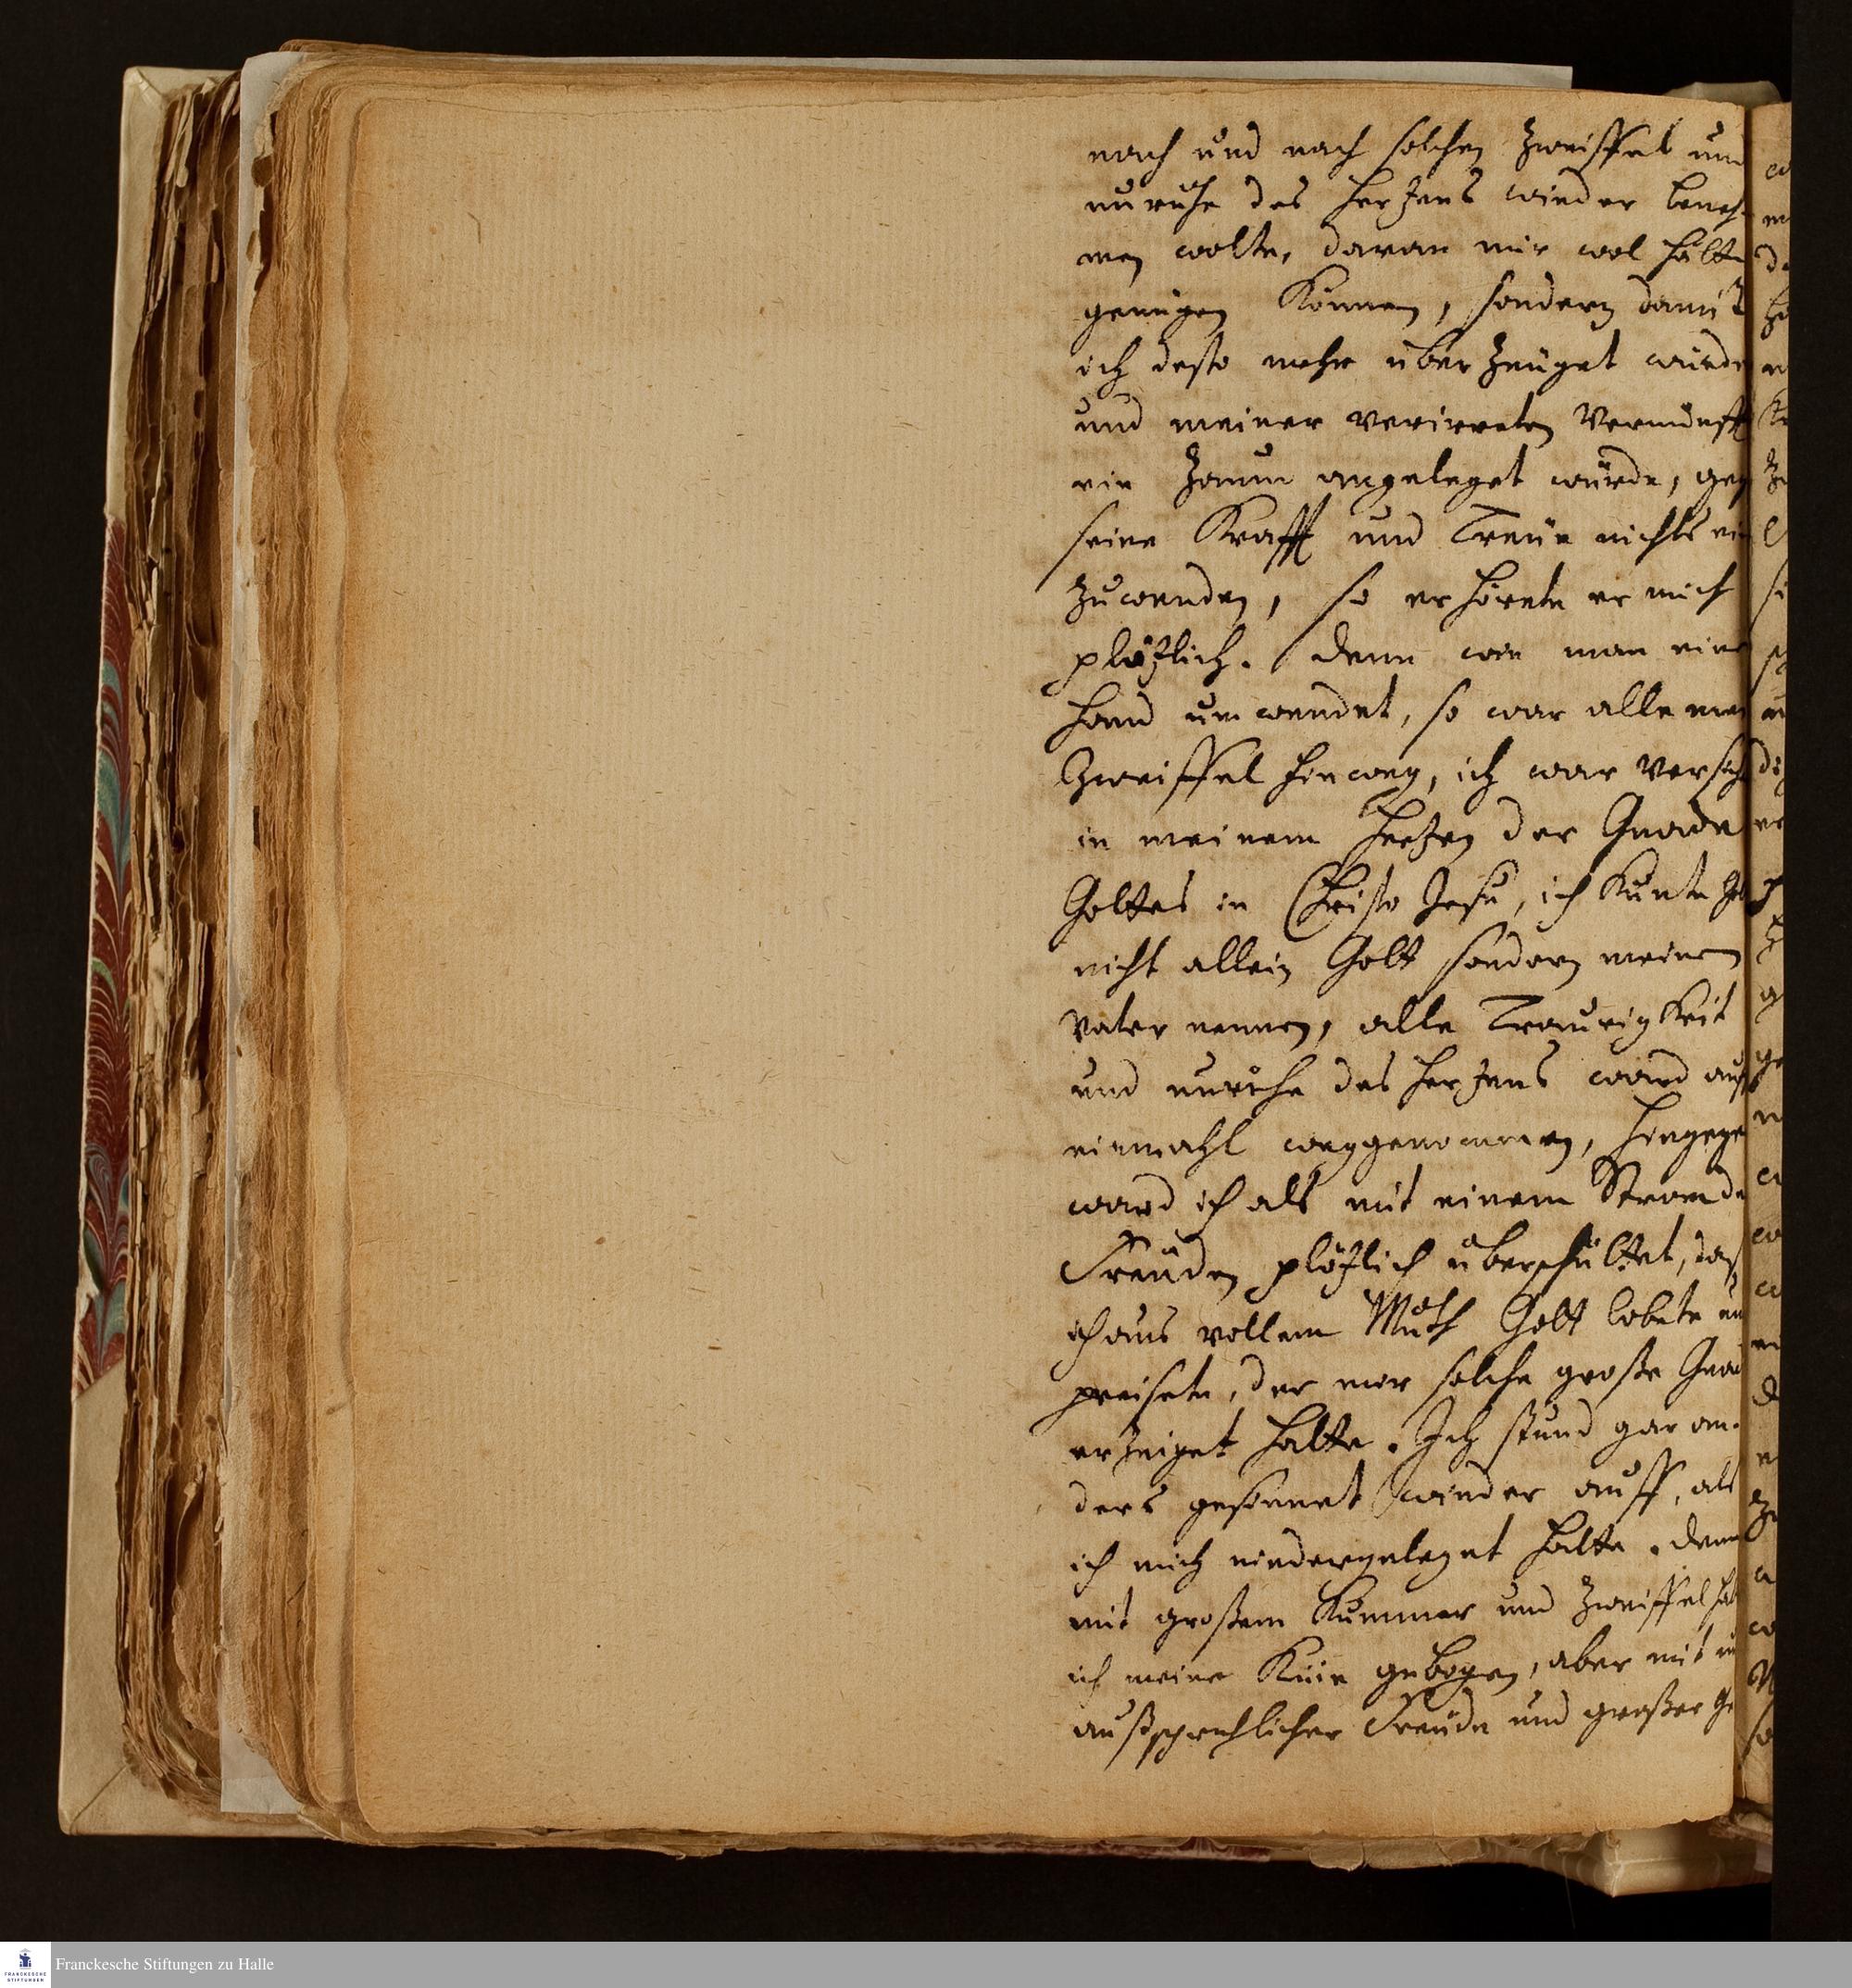 nach und nach solchen Zweiffel und
unruhe des Hertzens wieder beneh-
men wolte, daran mir wol hätte
genügen können, sondern damit
ich desto mehr überzeuget würde
und meiner verirreten Vernunfft
ein Zaum angeleget würde, gegen
seine Krafft und Treüe nichts ein
zuwenden, so erhörete er mich
plötzlich. Denn wie man eine
Hand umwendet, so war alle mein
Zweiffel hinweg, ich war versichert
in meinem Hertzen der Gnade
Gottes in Christo Jesu, ich kunte Gott
nicht allein Gott sondern meinen
Vater nennen, alle Traurigkeit
und unruhe des Hertzens ward auff
einmahl weggenommen, hingegen
ward ich als mit einem Strom der
Freuden plötzlich überschüttet, daß
ich aus vollem Muth Gott lobete und
preisete, der mir solche große Gnade
erzeiget hatte. Ich stund gar an-
ders gesinnet wieder auff, als
ich mich niedergeleget hatte. Denn
mit großem Kummer und Zweiffel hatte
ich meine Knie gebogen, aber mit un
außsprechlicher Freude und großer Ge
Franckesche Stiftungen zu Halle